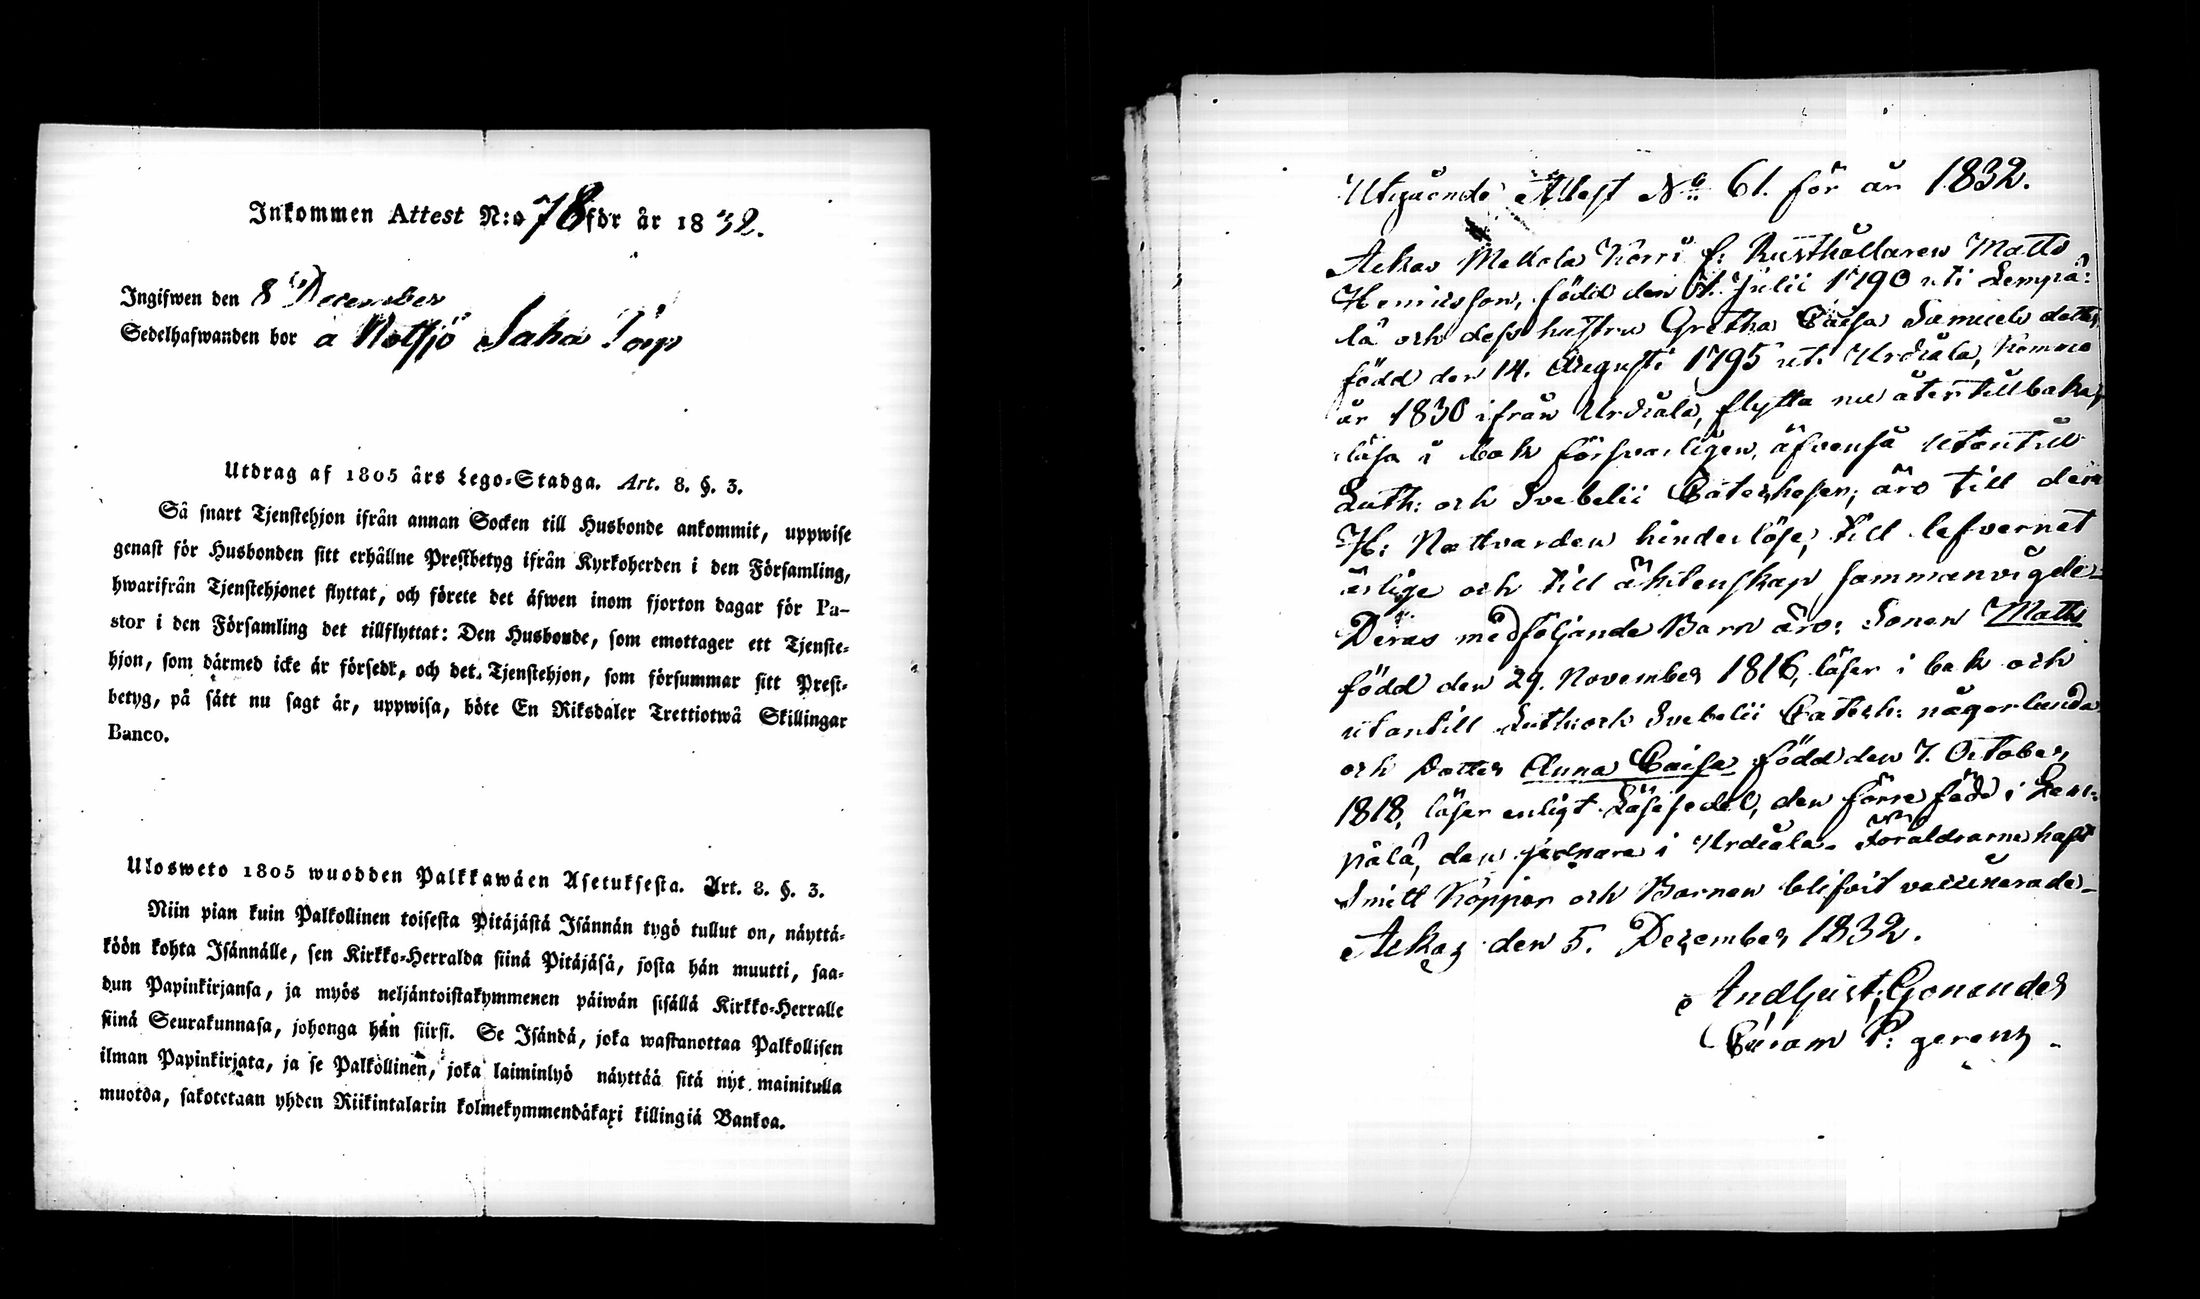 Inkommen Attest N:o 78 för år 1832.
Ingifwen den 8 December
Sedelhafwanden bor å Notsjö Saha Torp
Utdrag af 1805 års Lego-Stadga. Art. 8. §. 3.
Så snart Tjenstehjon ifrån annan Socken till Husbonde ankommit, uppwise
genast för Husbonden sitt erhållne Prestbetyg ifrån Kyrkoherden i den Församling,
hwarifrån Tjenstehjonet flyttat, och förete det äfwen inom fjorton dagar för Pa-
stor i den Församling det tillflyttat: Den Husbonde, som emottager ett Tjenste-
hjon, som därmed icke är försedt, och det Tjenstehjon, som försummar sitt Prest-
betyg, på sätt nu sagt är, uppwisa, böte En Riksdaler Trettiotwå Skillingar
Banco.
Ulosweto 1805 wuodden Palkkawäen Asetuksesta. Art. 8. §. 3.
Niin pian kuin Palkollinen toisesta Pitäjästä Isännän tygö tullut on, näyttä-
köön kohta Isännälle, sen Kirkko-Herralda siinä Pitäjäsä, josta hän muutti, saa-
dun Papinkirjansa, ja myös neljäntoistakymmenen päiwän sisällä Kirkko-Herralle
siinä Seurakunnasa, johonga hän siirsi. Se Isändä, joka wastanottaa Palkollisen
ilman Papinkirjata, ja se Palkollinen, joka laiminlyö näyttää sitä nyt mainitulla
muotoa, sakotetaan yhden Riikintalarin kolmekymmendäkaxi killingiä Bankoa.
Utgående Attest No 61. för år 1832.
Ackas Mellola Körri f: Rusthållaren Matts
Henricsson, född den 1. Julii 1790 uti Lempä:
lä och dess hustru Gretha Caisa Samuels dotter
född den 14. Augusti 1795 uti Urdiala, komne
år 1830 ifrån Urdiala, flytta nu åter tillbaka,
läsa i bok försvarligen, äfvenså utantill
Luth: och Svebelii Catecheser; äro till den
H: Nattvarden hinderlöse; till lefvernet
ärlige och till äktenskap sammanvigde_
Deras medföljande Barn äro: Sonen Matts
född den 29. November 1816, läser i bok och
utantill Luth: och Svebelii Catech: någorlunda
och Dotter Anna Caisa född den 7. October
1818, läser enligt Läsesedel, den förre född i Lem-
pälä, den sednare i Urdiala. Föräldrarne haft
Smitt koppor och Barnen blifvit vaccinerade_
Ackas den 5. December 1832.
And Gust. Gonander
P: gerens